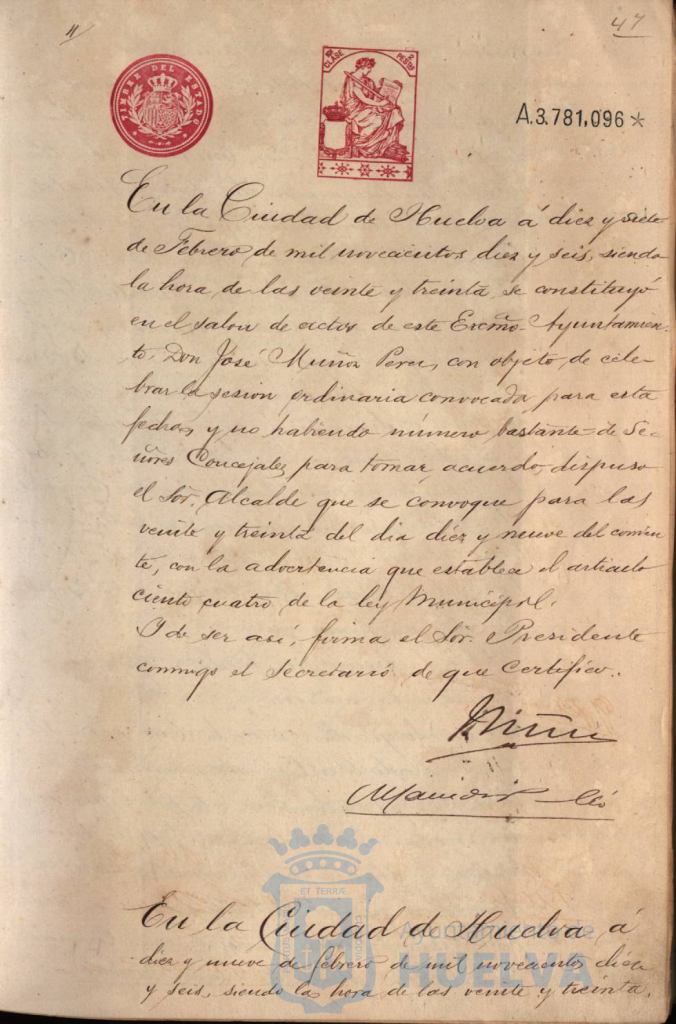 11
47
TIMBRE DEL ESTADO
CLASE
2 PESETAS
A.3.781,096*
En la Ciudad de Huelva á diez y siete
de Febrero de mil novecientos diez y seis, siendo
la hora de las veinte y treinta se constituyó
en el salon de actos de este Excmo. Ayuntamien-
to, Don José Muñoz Perez, con objeto de cele-
brar la sesion ordinaria convocada para esta
fecha, y no habiendo número bastante de Se-
ñores Concejales para tomar acuerdo, dispuso
el Sor. Alcalde que se convoque para las
veinte y treinta del dia diez y nueve del corrien-
te, con la advertencia que establece el articulo
ciento cuatro de la ley Municipal.
Y de ser asi, firma el Sor. Presidente
conmigo el Secretario de que Certifico.
ET TERRÆ
Ayuntamiento de
HUELVA
En la Ciudad de Huelva á
diez y nueve de febrero de mil novecientos diez
y seis, siendo la hora de las veinte y treinta,